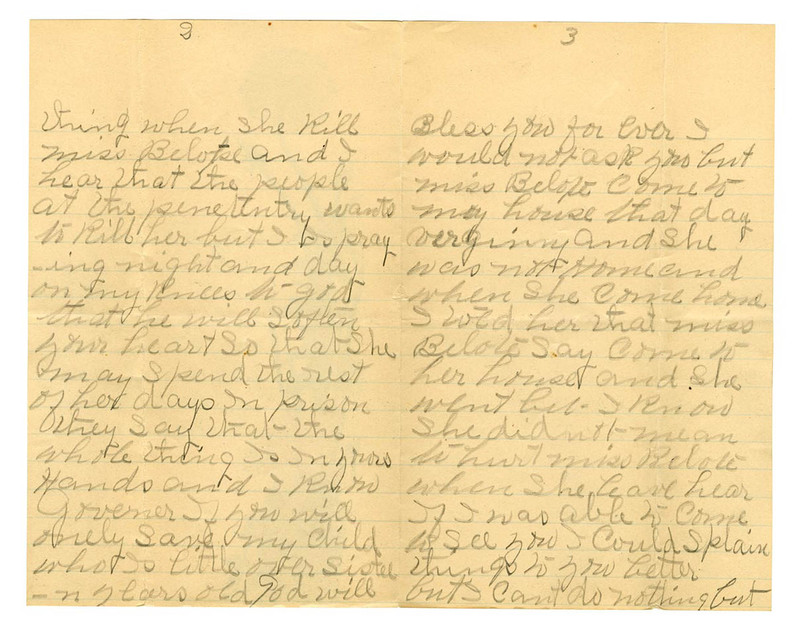 2
thing when she Kill
miss Belote and I
hear that the people
at the penetentry wants
to Kill her but I is pray
-ing night and day
on my Knees to god
that he will soften
your heart So that She
may Spend the rest
of her days In prison
they Say that the
whole thing Is In yours
Hands and I Know
Govener If you will
onely Save my child
who Is little over sixtee
-n years old God will
3
Bless you for ever I
would not ask you but
miss Belote Come to
my house that day
verginny and She
was not Home and
when She Come home
I told her that miss
Belote Say Come to
her house and She
went but I Know
She did not mean
to hurt miss Belote
when She leave hear
If I was able to Come
to See you I Could Splain
things to you better
but I Cant do nothing but